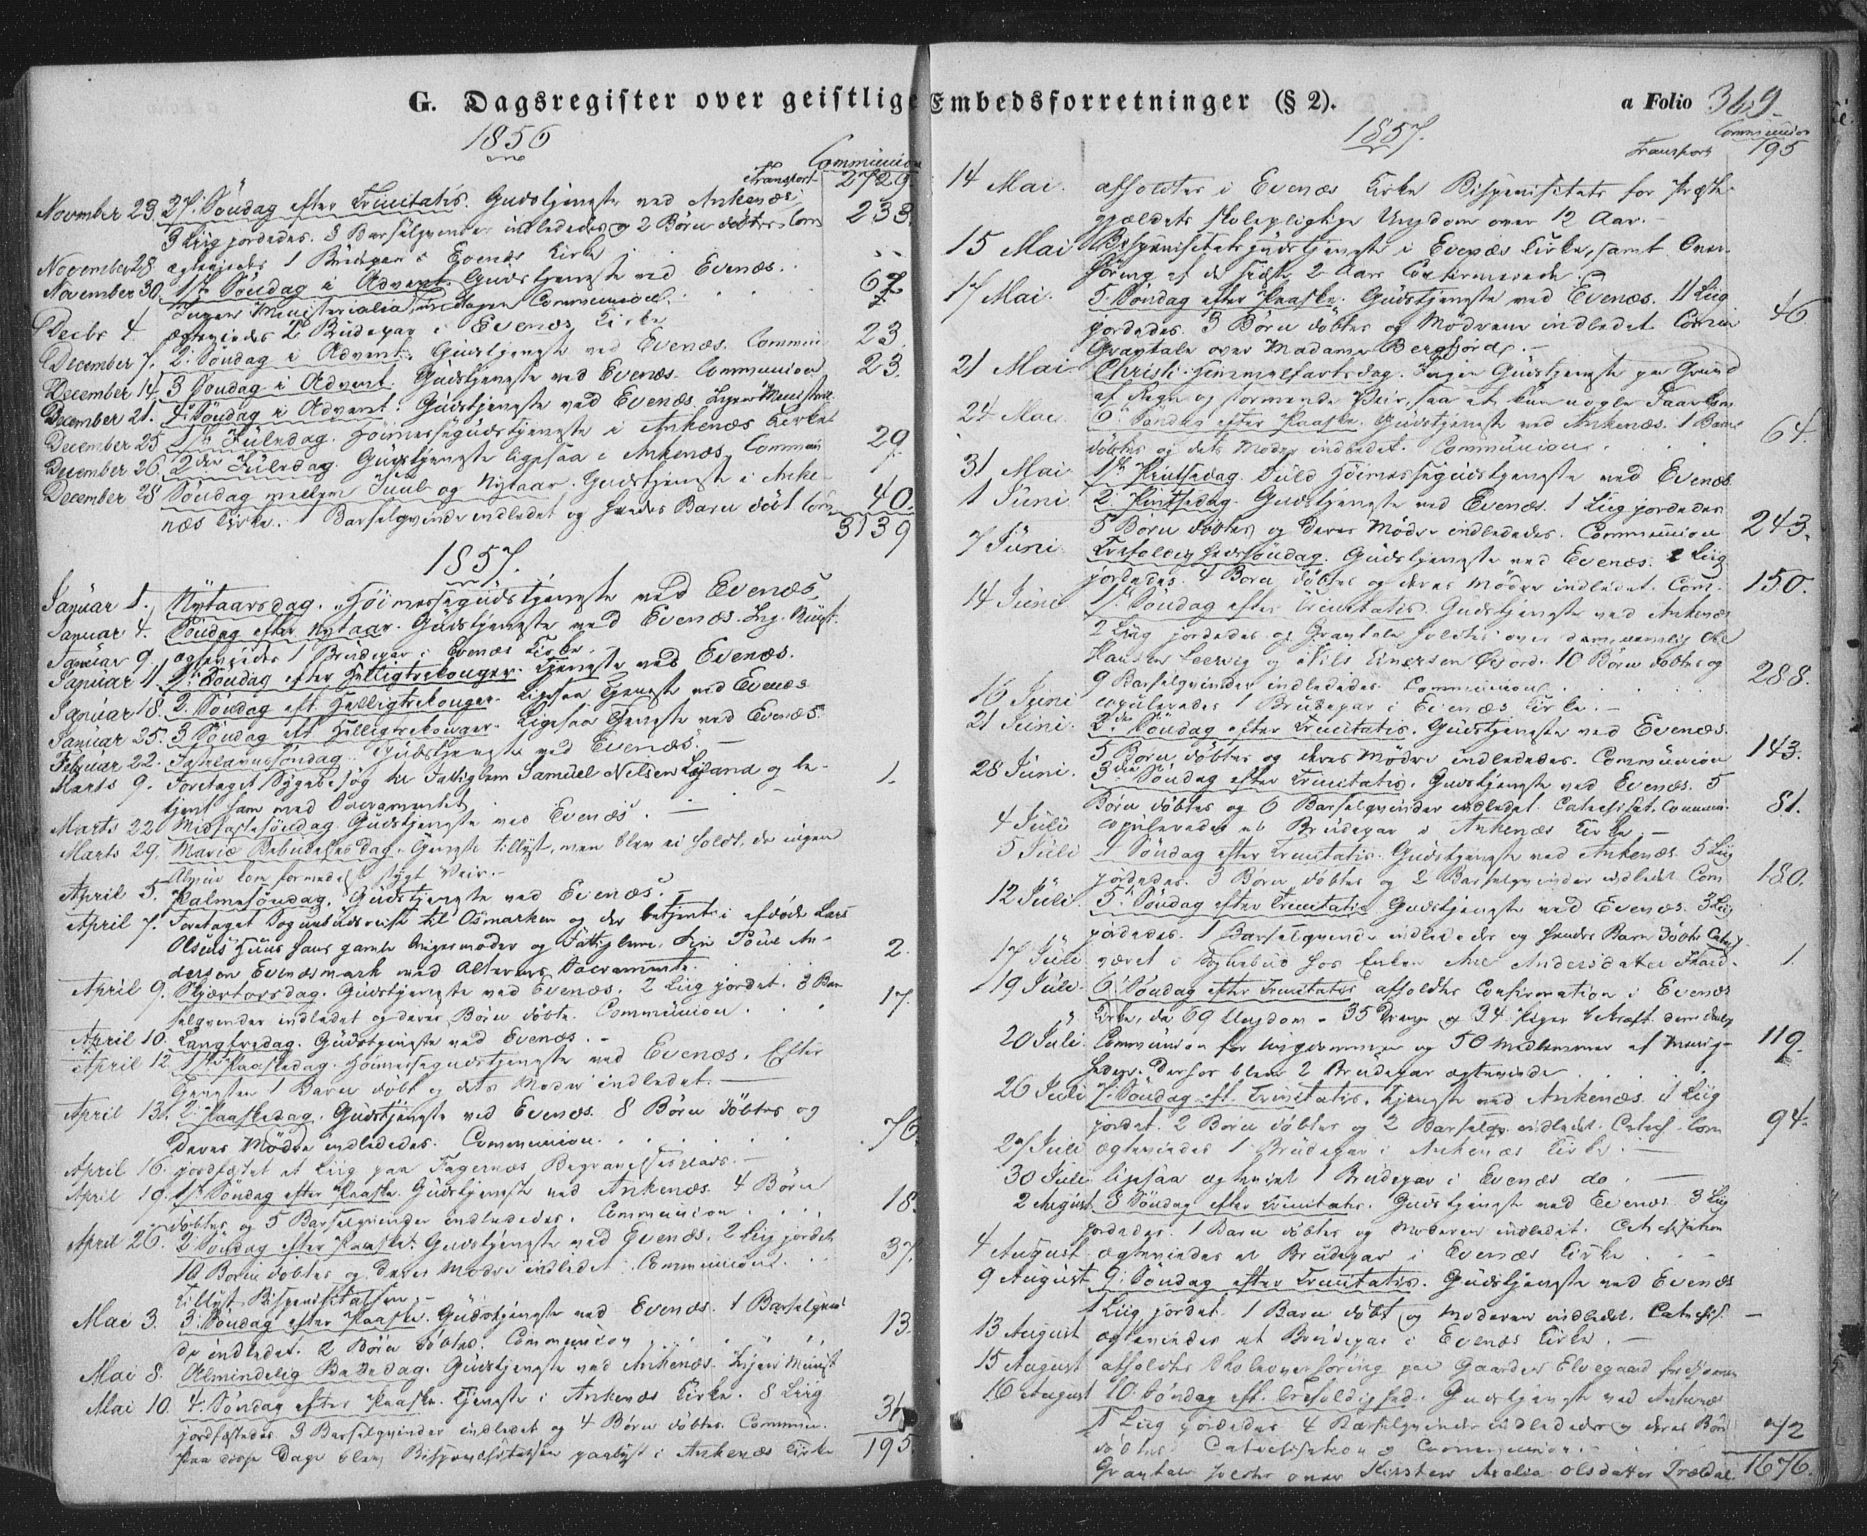 G. Dagsregister over geistlige Embedsforretninger (§ 2).
a Folio 369.
1856
Communion
Transport 2729.
November 23. 27. Söndag efter Trinitatis. Gudstjeneste ved Ankenæs
3 Liig jordedes. 3 Barselqvinder indledede og 2 Börn döbtes. Com 233.
November 28. ægteviedes 1 Brüdepar i Evenæs Kirke
November 30. 1ste Söndag i Advent. Gudstjeneste ved Evenæs. 67
Ingen Ministerialia, undtagen Communion.
Decbr 4. ægteviedes 2 Brüdepar i Evenæs Kirke
December 7. 2. Söndag i Advent. Gudstjeneste ved Evenæs. Commun 23.
December 14. 3 Söndag i Advent. Gudstjeneste ved Evenæs. Communion 23.
December 21. 4. Söndag i Advent. Gudstjeneste ved Evenæs. Ingen Minister
December 25. 1ste Juledag. Höimessegudstjeneste i Ankenæs Kirke
December 26. 2den Juledag. Gudstjeneste ligesaa i Ankenæs. Commun 29.
December 28 Söndag mellem Juul og Nytaar. Gudstjeneste i Anke-
næs Kirke. 1 Barselqvinde indledet og hendes Barn döbt Com 40.
3139
1857.
Januar 1. Nytaarsdag. Höimessegudstjeneste ved Evenæs.
Januar 4. Söndag efter Nytaar. Gudstjeneste ved Evenæs. Ing. Minist.
Januar 9. ægteviedes 1 Brüdepar i Evenæs Kirke.
Januar 11. 1ste Söndag efter Helligtrekonger. Tjeneste ved Evenæs.
Januar 18. 2. Söndag eft. Helligtrekonger. Ligesaa Tjeneste ved Evenæs
Januar 25. 3 Söndag eft Helligtrekonger. Ligesaa Tjeneste ved Evenæs.
Februar 22. Fastelavnssöndag. Gudstjeneste ved Evenæs.
Marts 9. Foretaget Sygebesög til Fattiglem Samuel Nelsen og be- 1.
tjent ham med Sacramentet
Marts 22 Midfastesöndag. Gudstjeneste ved Evenæs.
Marts 29. Mariæ Bebudelses Dag. Tjeneste tillyst, men blev ei holdt, da ingen
Almue kom formedelst stygt Veir.
April 5. Palmesöndag. Gudstjeneste ved Evenæs.
April 7. Foretaget Sognebudsreise til Osmarken og der betjent i afdöde Lars
Olsens Huus hans gamle Svigermoder og Fattiglem, Poul An-
dersen Evenæsmark med Alterens Sacramente. 2.
April 9. Skjærtorsdag. Gudstjeneste ved Evenæs. 2 Liig jordet. 3 Bar
selqvinder indledet og deres Börn döbte. Communion. 17.
April 10. Langfredag. Gudstjeneste ved Evenæs.
April 12. 1ste Paaskedag. Höimessegudstjeneste ved Evenæs. Efter
Tjenesten 1 Barn döbt og dets Moder indledet.
April 13. 2. Paaskedag. Gudstjeneste ved Evenæs. 8 Börn döbtes og
deres Mödre indledede. Communion. 76.
April 16. jordfæstet et Liig paa Fagernæs Begravelsesplads.
April 19. 1ste Söndag efter Paaske. Gudstjeneste ved Ankenæs. 4 Börn
döbtes og 5 Barselqvinder indledede. Communion. 18.
April 26. 2 Söndag efter Paaske. Gudstjeneste ved Evenæs. 2 Liig jordet
10 Börn döbtes og deres Mödre indledet. Communion. 37.
tillyst Bispevisitatsen.
Mai 3. 3. Söndag efter Paaske. Gudstjeneste ved Evenæs. 1 Barselqvin
de indledet. 2 Börn döbtes. Communion 13.
Mai 8. Almindelig Bededag. Gudstjeneste ved Ankenæs. Ingen Minist
Mai 10. 4. Söndag efter Paaske. Tjeneste i Ankenæs Kirke. 8 Liig
jordfæstedes. 3 Barselqvinder indledet og 4 Börn döbtes. Commun.
Paa disse Dage blev Bispevisitatsen paalyst i Ankenæs Kirke 195.
1857.
Communion
Transport 195
14 Mai. afholdtes i Evenæs Kirke Bispevisitats for Præste
gjældets skolepligtige Ungdom over 12 Aar.
15 Mai Bispevisitatsgudstjeneste i Evenæs Kirke, samt Over
höring af de sidste 2 Aars Confirmerede.
17 Mai. 5. Söndag efter Paaske. Gudstjeneste ved Evenæs. 11 Liig
jordedes. 3 Börn döbtes og Mödrene indledet. Comm 46
Gravtale over Madame Bergfjord.
21 Mai Christi Himmelfartsdag. Ingen Gudstjeneste paa Grund
af Regn og stormende Veir, saa at kun nogle Faa kom.
24 Mai 6. Söndag efter Paaske. Gudstjeneste ved Ankenæs. 1 Barn
döbtes og dets Moder indledet. Communion. 64.
31 Mai 1ste Pintsedag. Fuld Höimessegudstjeneste ved Evenæs
1 Juni 2. Pintsedag. Gudstjeneste ved Evenæs. 1 Liig jordedes
5 Börn döbtes og deres Mödre indledede. Communion 243.
7 Juni Trefoldigheds söndag. Gudstjeneste ved Evenæs. 2 Liig
jordedes. 4 Börn döbtes og deres Mödre indledet. Com. 150.
14 Juni 1ste Söndag efter Trinitatis. Gudstjeneste ved Ankenæs
2 Liig jordedes og Gravtale holdtes over dem, nemlig Ole
Hansen Leervig og Nils Einersen Öijord. 10 Börn döbtes og
9 Barselqvinder indledede. Communion. 288.
16 Juni copuleredes 1 Brüdepar i Evenæs Kirke.
21 Juni. 2den Söndag efter Trinitatis. Gudstjeneste ved Evenæs.
5 Börn döbtes og deres Mödre indledede. Communion 143.
28 Juni. 3die Söndag efter Trinitatis. Gudstjeneste ved Evenæs. 5
Börn döbtes og 6 Barselqvinder indledet. Catechiset. Commun. 81.
4 Juli copuleredes et Brüdepar i Ankenæs Kirke.
5 Juli 4 Söndag efter Trinitatis. Gudstjeneste ved Ankenæs. 5 Liig
jordedes. 3 Börn döbtes og 2 Barselqvinder indledet. Com 180.
12 Juli. 5. Söndag efter Trinitatis Gudstjeneste ved Evenæs. 3 Liig
jordedes. 1 Barselqvinde indlededes og hendes Barn döbtes Catech
17 Juli været i Sognebud hos Enken Ane Andersdatter 1
19 Juli. 6. Söndag efter Trinitatis afholdtes Confirmation i Evenæs
Kirke, da 69 Ungdom - 35 Drenge og 34 Piger bekræft. deres Daab
20 Juli. Communion for Ungdommen og 50 Medlemmer af Menig- 119.
heden. Derhos bleve 2 Brüdepar ægteviede
26 Juli 7. Söndag eft. Trinitatis. Tjeneste ved Ankenæs. 1 Liig
jordet. 2 Börn döbtes og 2 Barselqv. indledet. Catech. Com 94.
27 Juli ægteviedes 1 Brüdepar i Ankenæs Kirke.
30 Juli ligesaa ægteviet 1 Brüdepar i Evenæs do.
2 August 8 Söndag efter Trinitatis. Gudstjeneste ved Evenæs. 3 Liig
jordedes. 1 Barn döbtes og Moderen indledet. Catechisation
4 August ægteviedes et Brüdepar i Evenæs Kirke
9 August 9. Söndag efter Trinitatis. Gudstjeneste ved Evenæs
1 Liig jordet. 1 Barn döbt og Moderen indledet. Catechis.
13 August ægteviedes et Brüdepar i Evenæs Kirke.
15 August afholdtes Skoleoverhöring paa Gaarden Elvegaard
16 August 10 Söndag eft. Trefoldighed. Gudstjeneste ved Ankenæs
1 Liig jordedes 4 Barselqvinder indledede og deres Börn
döbtes Catechisation og Communion. 72
Gravtale holdtes over Kirsten Amalia Olsdatter Trældal 1676.